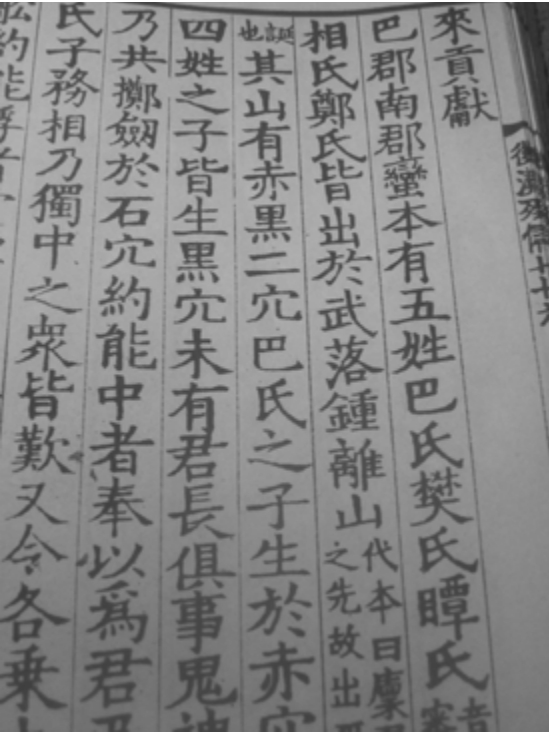 來貢獻
巴郡南郡蠻本有五姓巴氏樊氏瞫氏
相氏鄭氏皆出於武落鍾離山代本曰廩
之先故出
誕也其山有赤黑二穴巴氏之子生於赤穴
四姓之子皆生黑穴未有君長俱事鬼神
乃共擲劒於石穴約能中者奉以爲君
氏子務相乃獨中之衆皆歎又令各乗